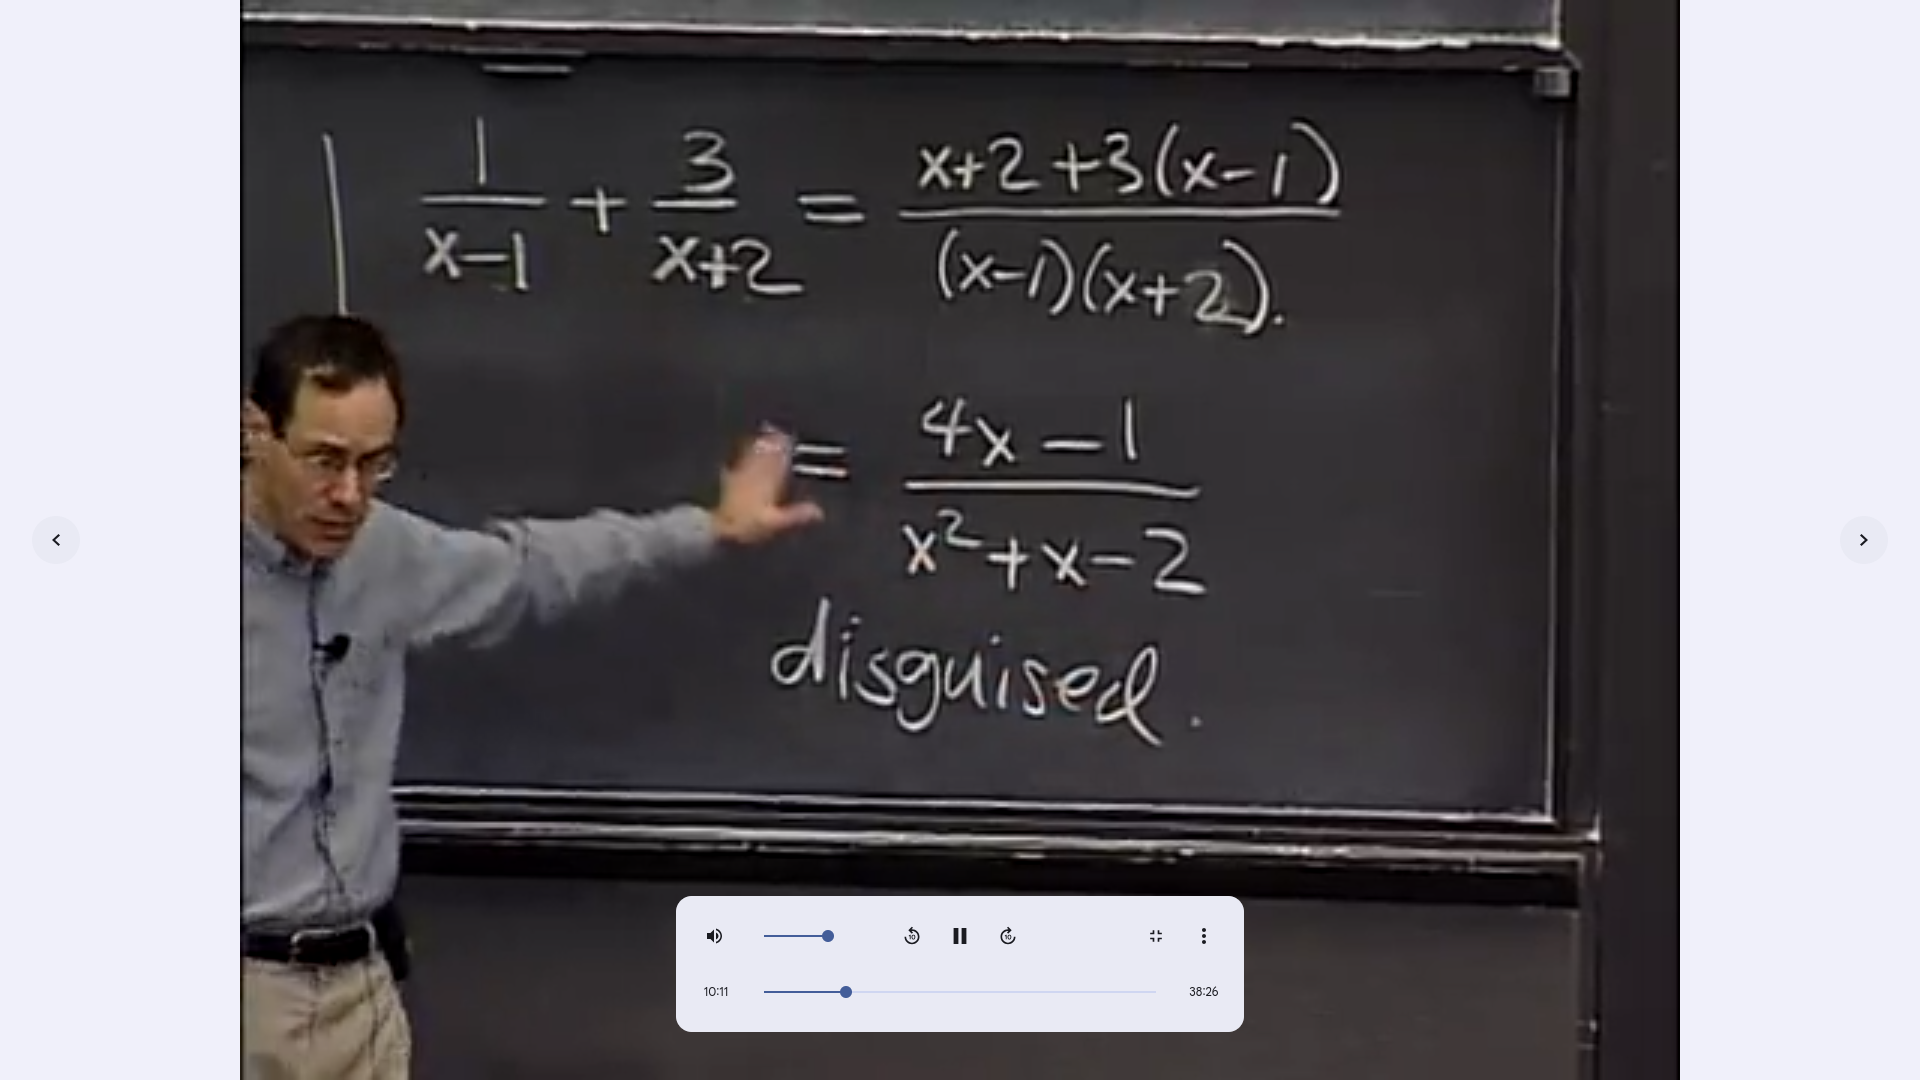 1/(x-1) + 3/(x+2) = (x+2+3(x-1))/((x-1)(x+2)).
= (4x-1)/(x²+x-2)
disguised.
10
10
10:11
38:26